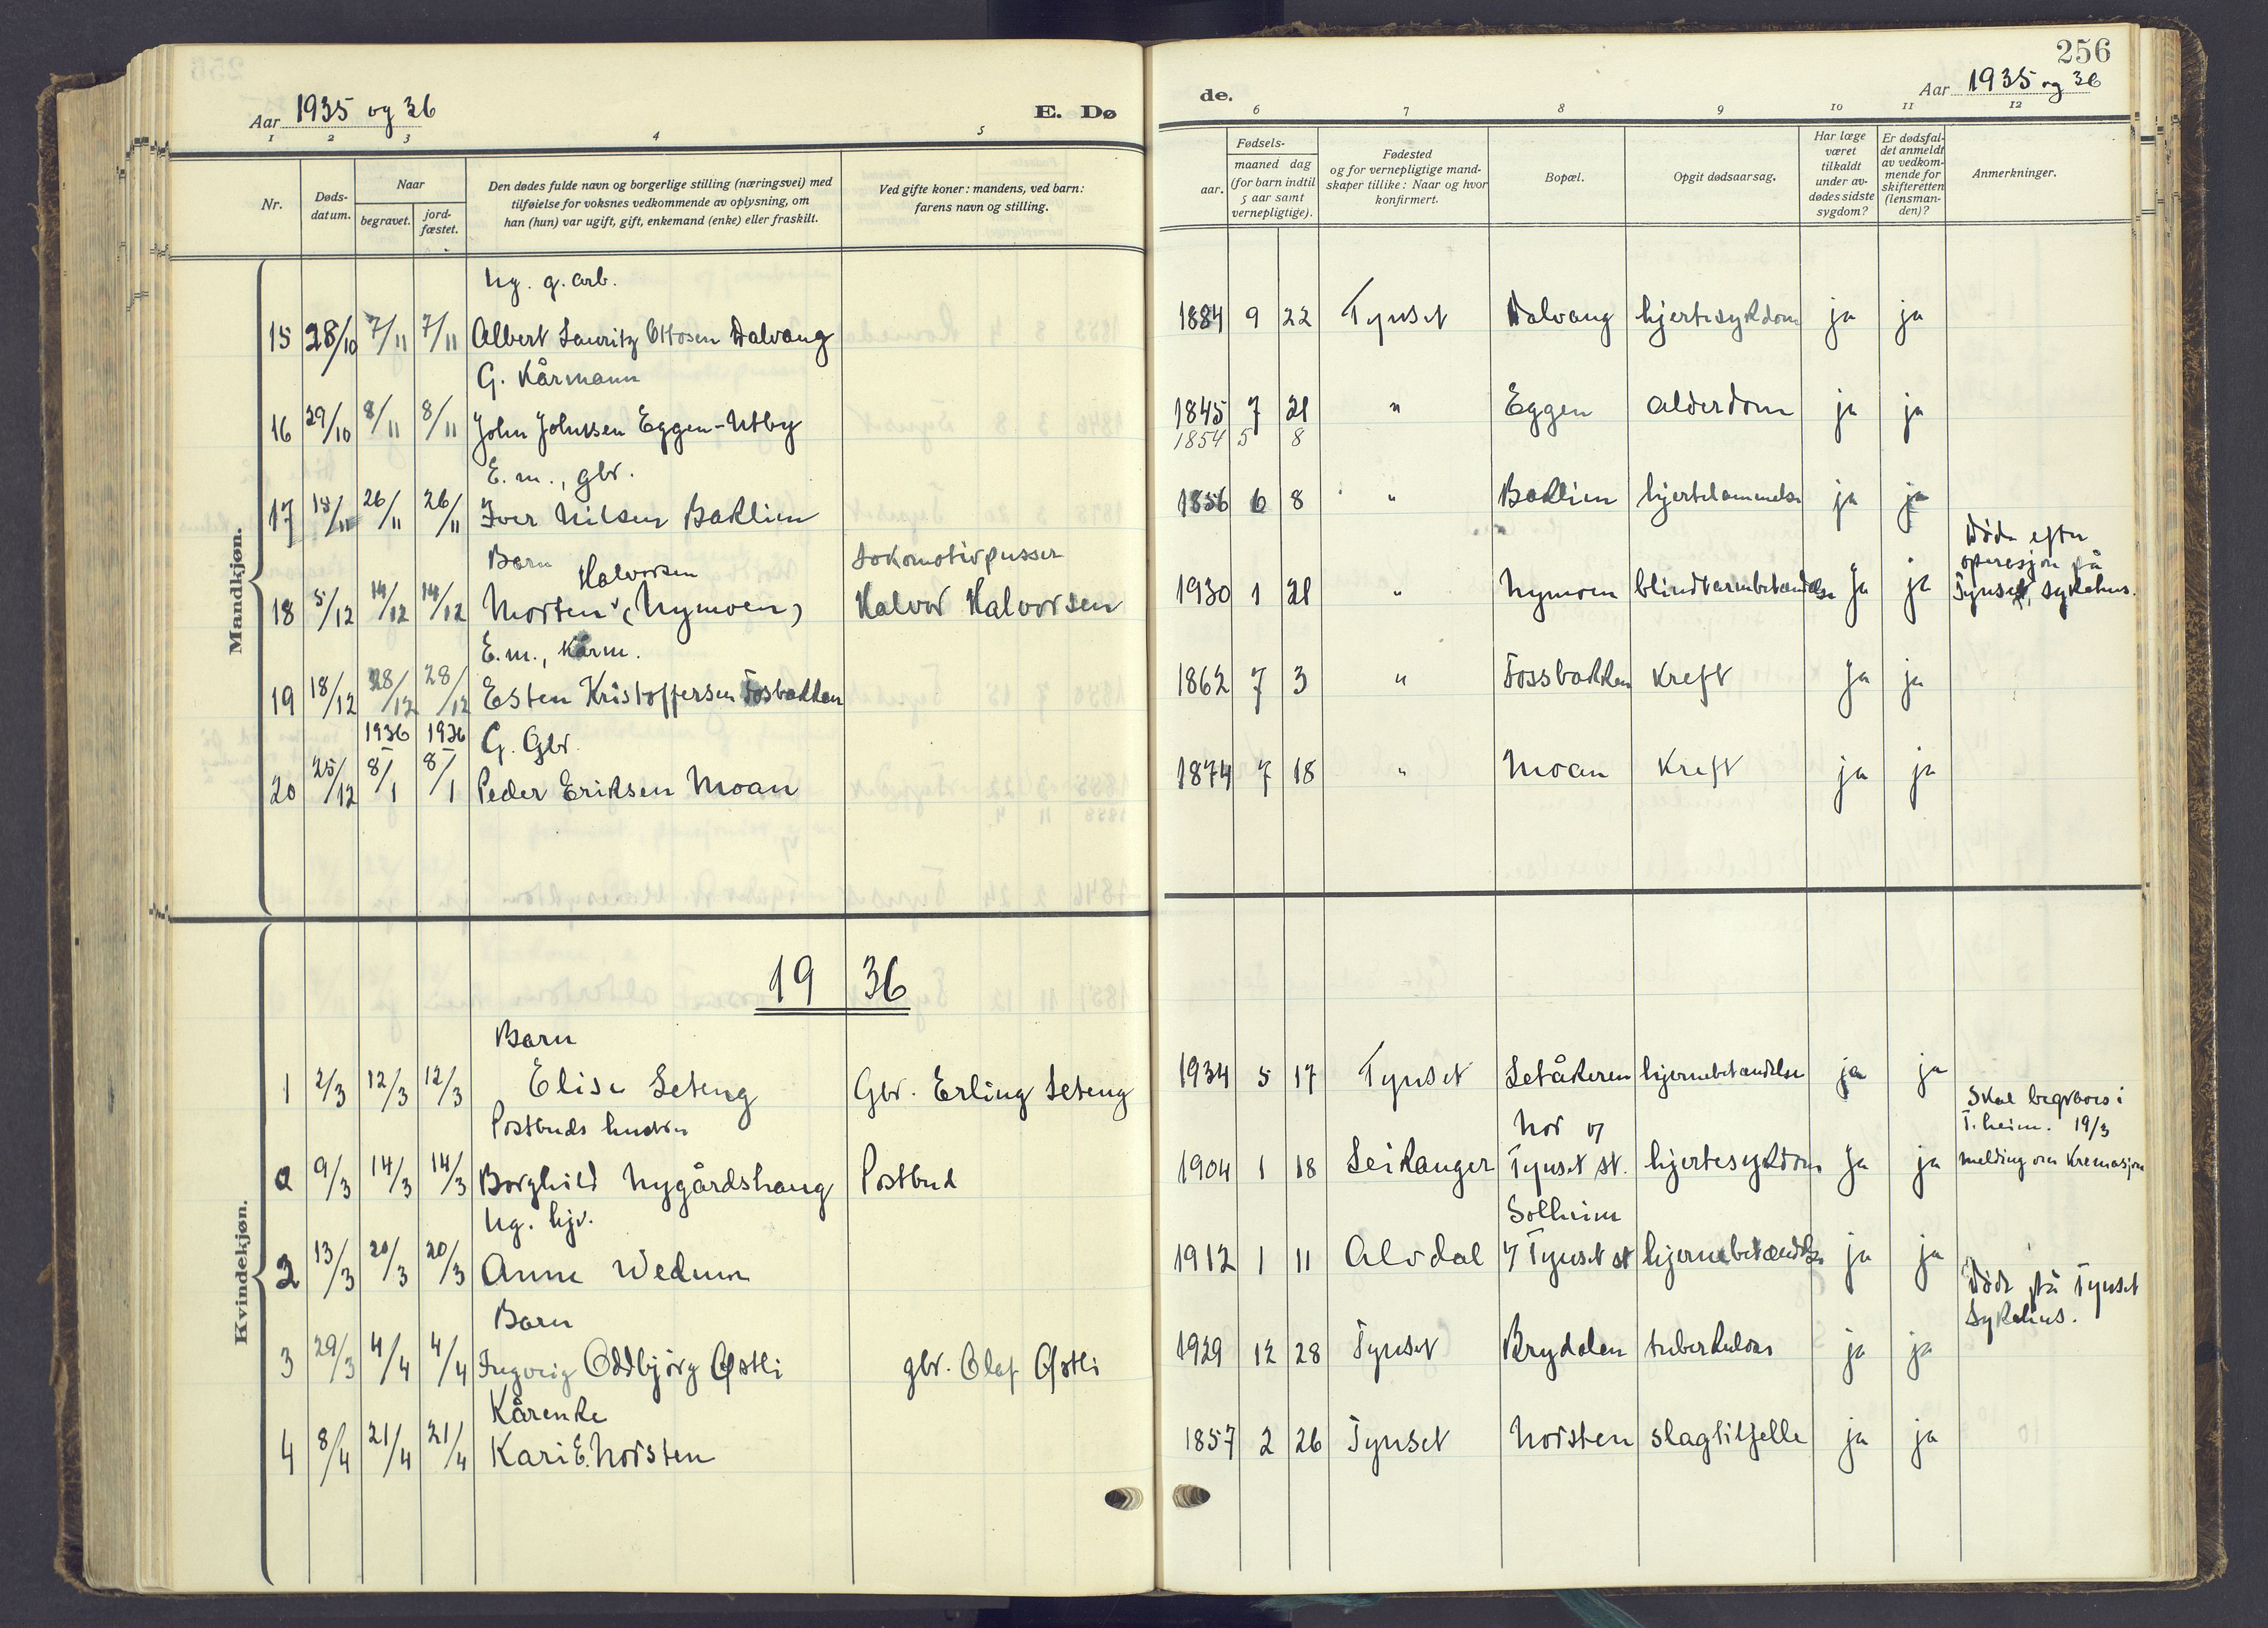 256
Aar 1935 og 36
E. Dø
de.
Aar 1935 og 36
1 2 3 4 5 6 7 8 9 10 11 12
Nr.
Døds-
datum.
Naar
begravet.
jord-
fæstet.
Den dødes fulde navn og borgerlige stilling (næringsvei) med
tilføielse for voksnes vedkommende av oplysning, om
han (hun) var ugift, gift, enkemand (enke) eller fraskilt.
Ved gifte koner: mandens, ved barn:
farens navn og stilling.
Fødsels-
aar.
maaned dag
(for barn indtil
5 aar samt
vernepligtige).
Fødested
og for vernepligtige mand-
skaper tillike: Naar og hvor
konfirmert.
Bopæl.
Opgit dødsaarsag.
Har læge
været
tilkaldt
under av-
dødes sidste
sygdom?
Er dødsfal-
det anmeldt
av vedkom-
mende for
skifteretten
(lensman-
den)?
Anmerkninger.
Mandkjøn.
Ug. g. arb.
15 28/10 7/11 7/11 Albert Lauritz Ottosen Dalvang 1884 9 22 Tynset Dalvang hjertesykdom ja ja
G. Kårmann
16 29/10 8/11 8/11 John Johnsen Eggen-Utby 1845 7 21 " Eggen alderdom ja ja
1854 5 8
E. m., gbr.
17 15/11 26/11 26/11 Iver Nilsen Baklien 1856 6 8 " Baklien hjertelammelse ja ja
Barn Halvorsen Lokomotivpusser
18 5/12 14/12 14/12 Morten (Nymoen) Halvor Halvorsen 1930 1 21 " Nymoen blindtarmbetændelse ja ja
Døde efter
operasjon på
Tynset, sykehus.
E. m., Kårm.
19 18/12 28/12 28/12 Esten Kristoffersen Fosbakken 1862 7 3 " Fossbakken Kreft ja ja
1936 1936 G. Gbr.
20 25/12 8/1 8/1 Peder Eriksen Moan 1874 7 18 " Moan Kreft ja ja
1936
Kvindekjøn.
Barn
1 2/3 12/3 12/3 Elise Seteng Gbr. Erling Seteng 1934 5 17 Tynset Setåkeren hjernebetændelse ja ja
Postbuds hustru Nor
2 9/3 14/3 14/3 Borghild Nygårdshaug Postbud 1904 1 18 Leikanger Tynset st. hjertesykdom ja ja
Skal begraves i
T. heim. 19/3
melding om Kremasjon
Ug. hjv. Solheim
2 13/3 20/3 20/3 Anne Wedum 1912 1 11 Alvdal Tynset st hjernebetændelse ja ja
Barn
3 29/3 4/4 4/4 Ingveig Oddbjörg Østli gbr. Olaf Østli 1929 12 28 Tynset Brydalen tuberkulose ja ja
Døde på Tynset
Sykehus.
Kårenke
4 8/4 21/4 21/4 Kari E. Norsten 1857 2 26 Tynset Norsten slagtilfelle ja ja